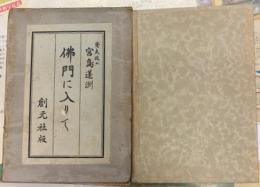 宮島蓬洲
佛門に入りて
創元社版